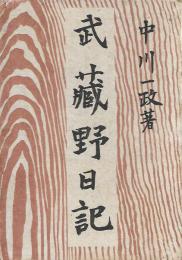 中川一政著
武藏野日記